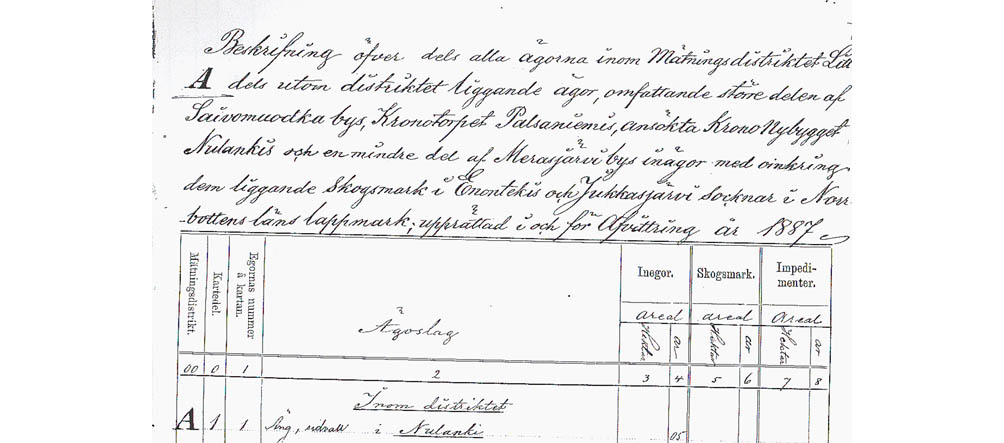 Beskrifning öfver dels alla ägorna inom Mätningsdistriktet Litt
A dels utom distriktet liggande ägor, omfattande större delen af
Saivomuodka bys, Kronotorpet Palsaniemis, ansökta Krono Nybygget
Nulankis och en mindre del af Merasjärvi bys inägor med omkring
dem liggande Skogsmark i Enontekis och Jukkasjärvi Socknar i Norr-
bottens läns lappmark; upprättad i och för Afvittring år 1887
Mätningsdistrikt.
Kartedel.
Egornas nummer å kartan.
Ägoslag
Inegor.
Skogsmark.
Impedi-
menter.
areal areal Areal
Hektar ar Hektar ar Hektar ar
00 0 1 2 3 4 5 6 7 8
Inom distriktet
A 1 1 Äng, i Nulanki 05